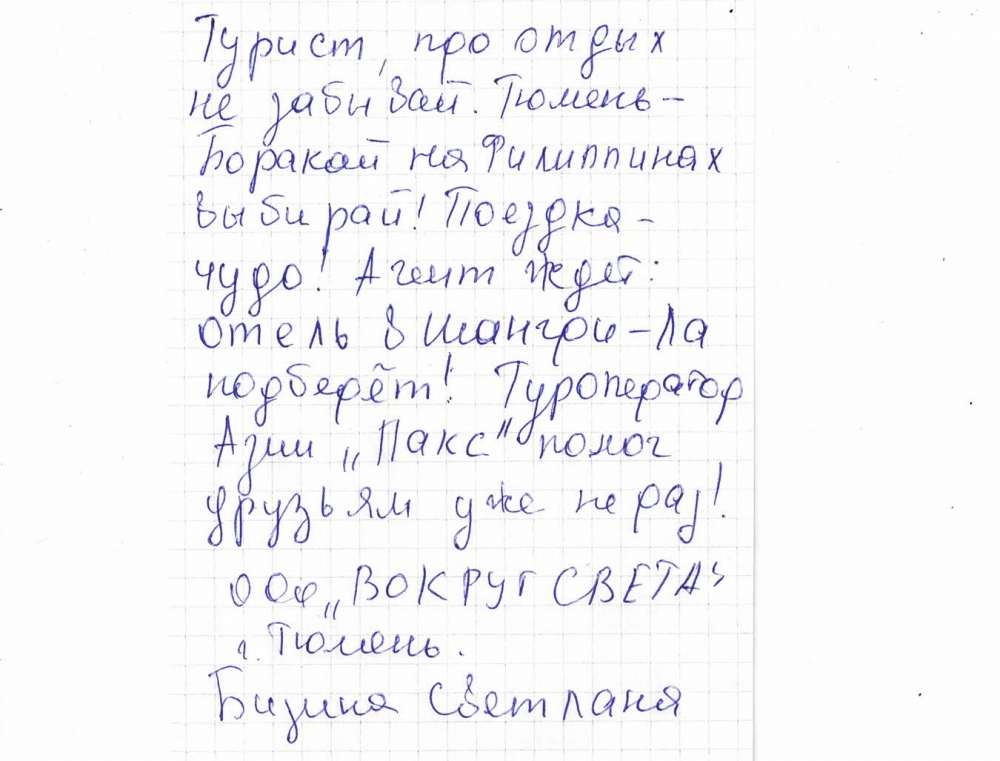 Турист, про отдых
не забывай. Тюмень-
Боракай на Филиппинах
выбирай! Поездка-
чудо! Агент ждет:
отель в Шангри-Ла
подберёт! Туроператор
Азии „Пакс" помог
друзьям уже не раз!
ООО „ВОКРУГ СВЕТА"
г. Тюмень.
Бизина Светлана